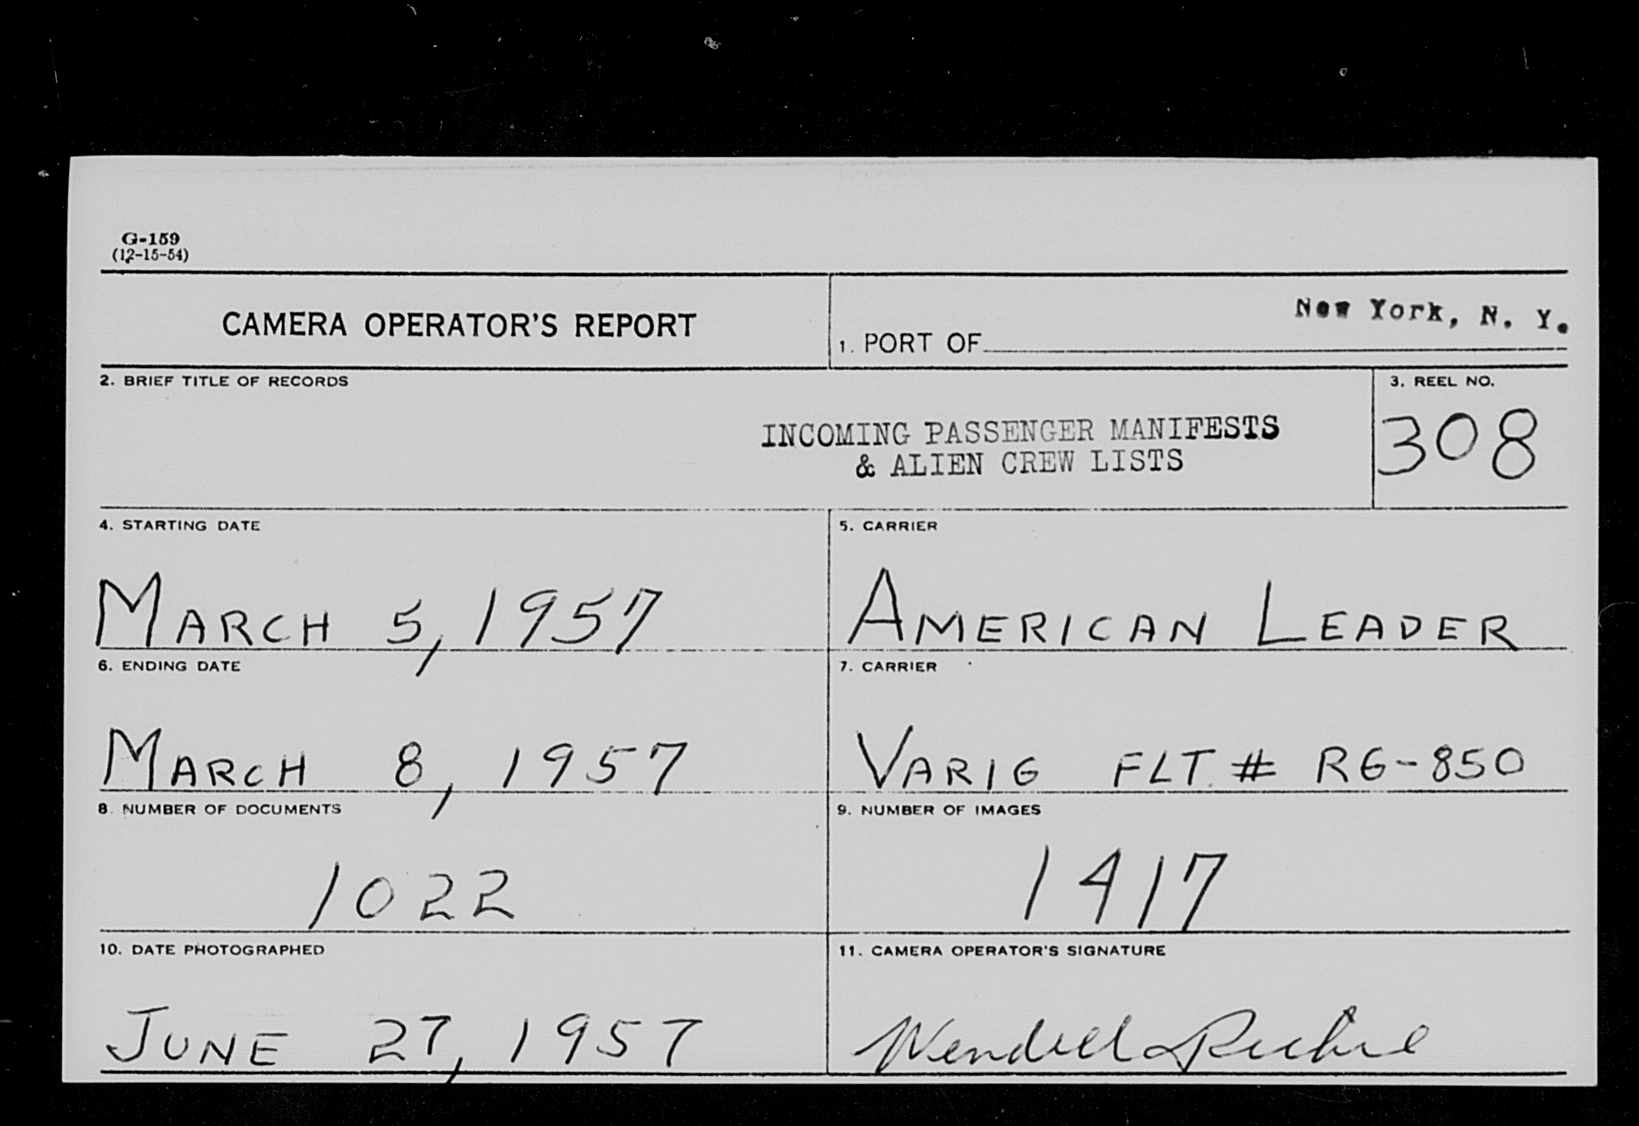 G-159
(12-15-54)
CAMERA OPERATOR'S REPORT
1. PORT OF New York, N. Y.
2. BRIEF TITLE OF RECORDS
INCOMING PASSENGER MANIFESTS
& ALIEN CREW LISTS
3. REEL NO.
308
4. STARTING DATE
MARCH 5, 1957
5. CARRIER
AMERICAN LEADER
6. ENDING DATE
MARCH 8, 1957
7. CARRIER
VARIG FLT. # RG-850
8. NUMBER OF DOCUMENTS
1022
9. NUMBER OF IMAGES
1417
10. DATE PHOTOGRAPHED
JUNE 27, 1957
11. CAMERA OPERATOR'S SIGNATURE
Wendell